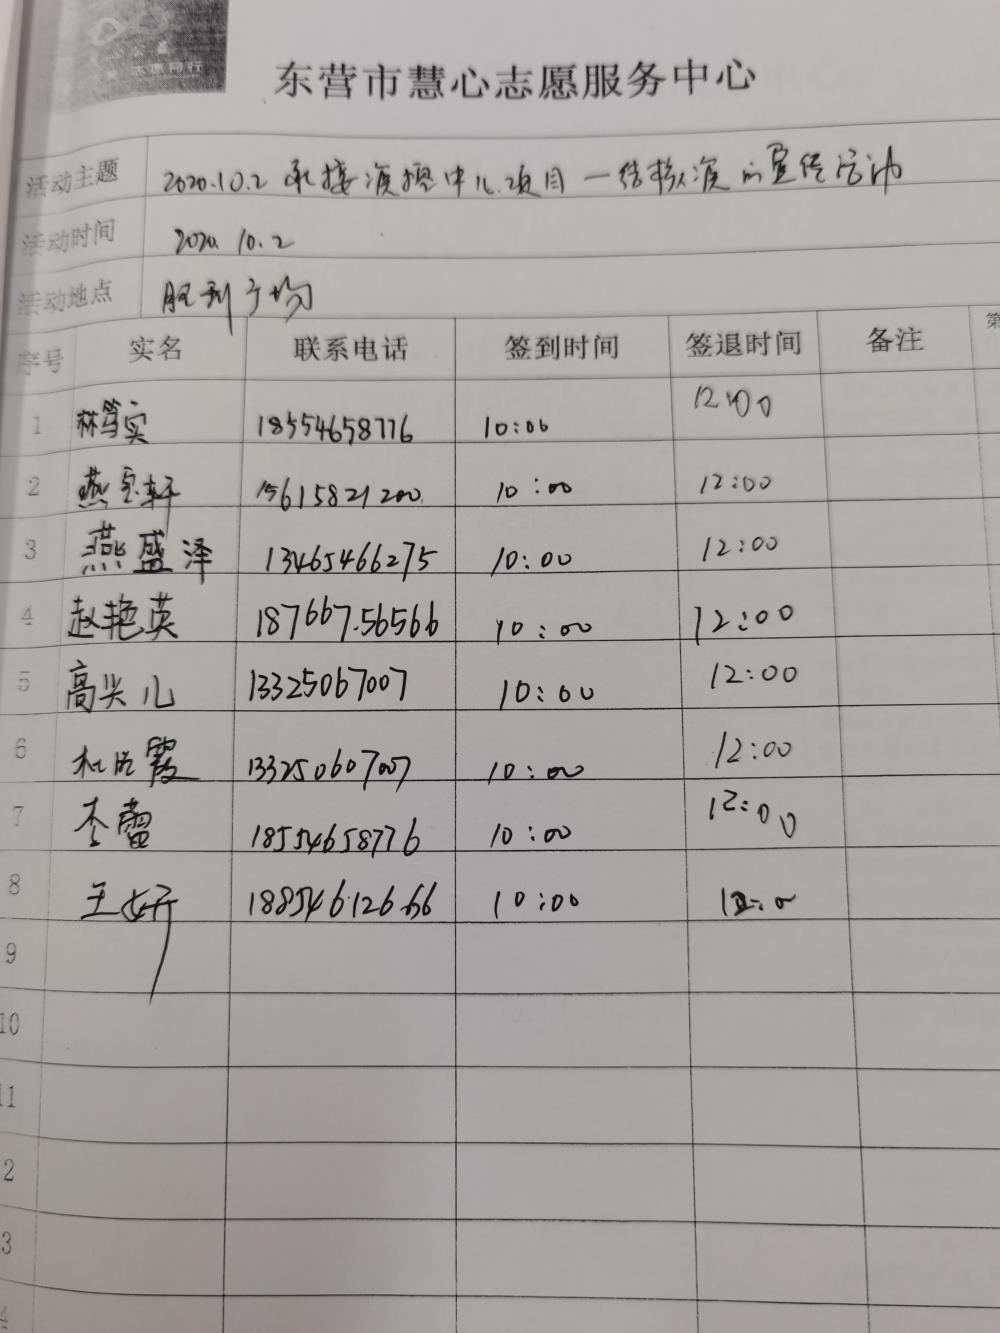 志愿同行
东营市慧心志愿服务中心
活动主题 2020.10.2 承接疾控中心项目一结核病的宣传活动
活动时间 2020.10.2
活动地点 胜利广场
序号 实名 联系电话 签到时间 签退时间 备注 第
1 林笃实 18554658776 10:00 12:00
2 燕宝轩 15615821200 10:00 12:00
3 燕盛泽 13465466275 10:00 12:00
4 赵艳英 18766756566 10:00 12:00
5 高尖儿 13325067007 10:00 12:00
6 霞 133250607007 10:00 12:00
7 李蕾 18554658776 10:00 12:00
8 王妍 18854612666 10:00
9
10
11
2
3
4